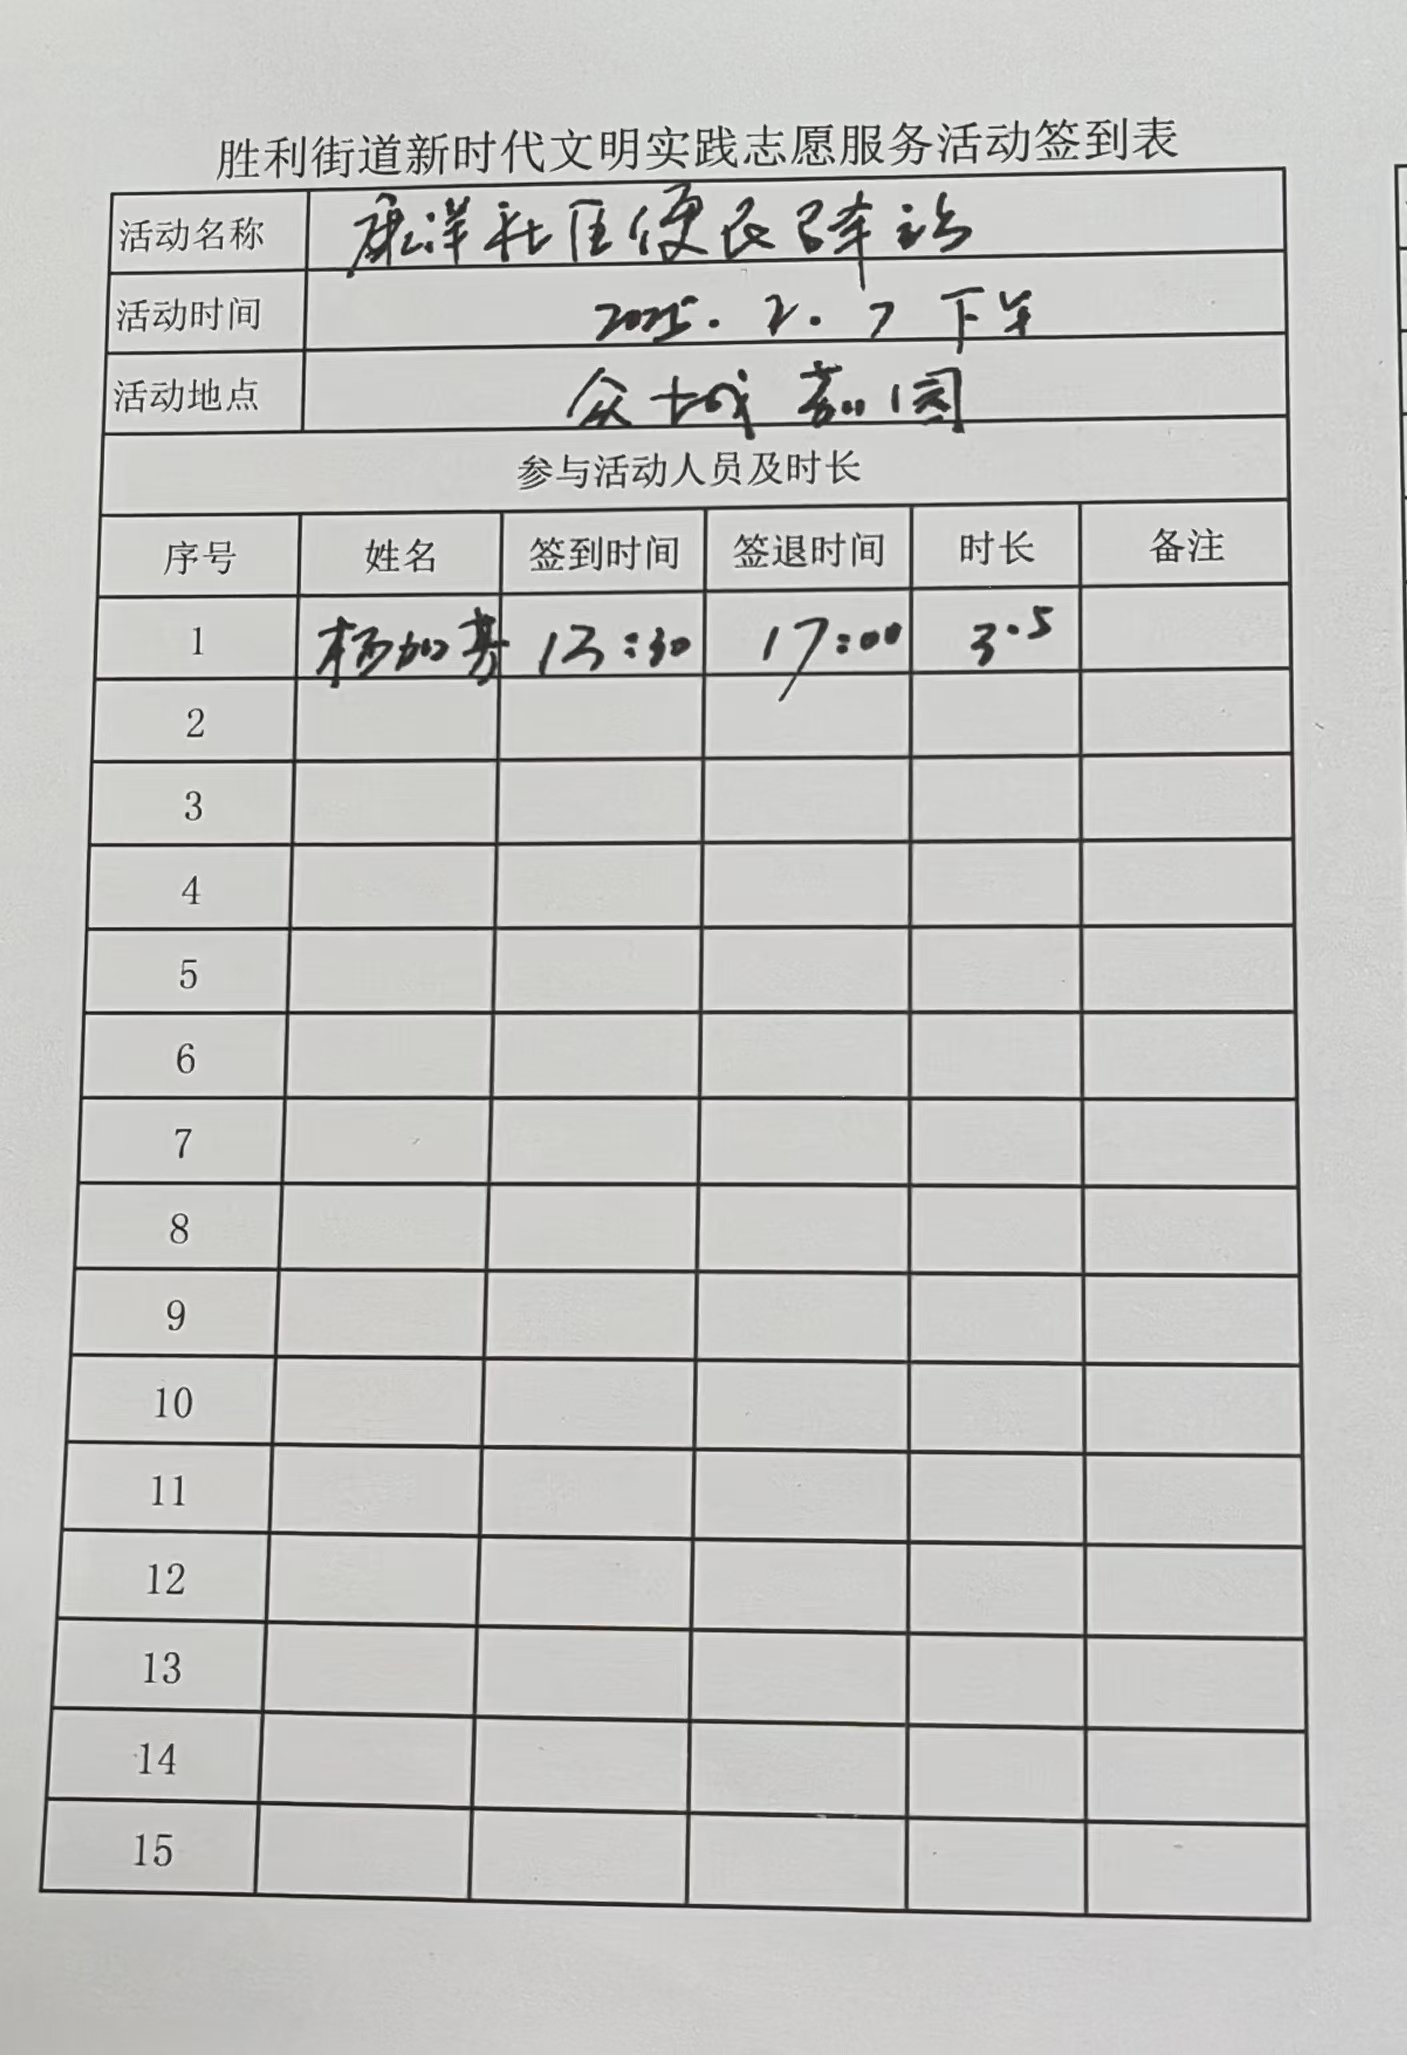 胜利街道新时代文明实践志愿服务活动签到表
活动名称 康洋社区便民驿站
活动时间 2025.2.7 下午
活动地点 众城嘉园
参与活动人员及时长
序号 姓名 签到时间 签退时间 时长 备注
1 杨加 13:30 17:00 3.5
2
3
4
5
6
7
8
9
10
11
12
13
14
15